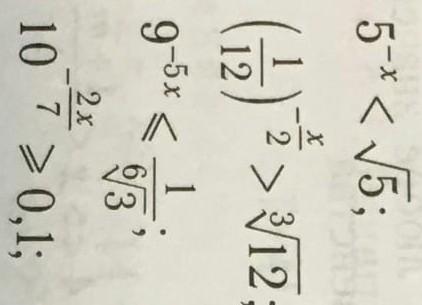 5^{-x} < √5;
(1/12)^{-x/2} > ∛12;
9^{-5x} ⩽ 1/⁶√3;
10^{-2x/7} ⩾ 0,1;